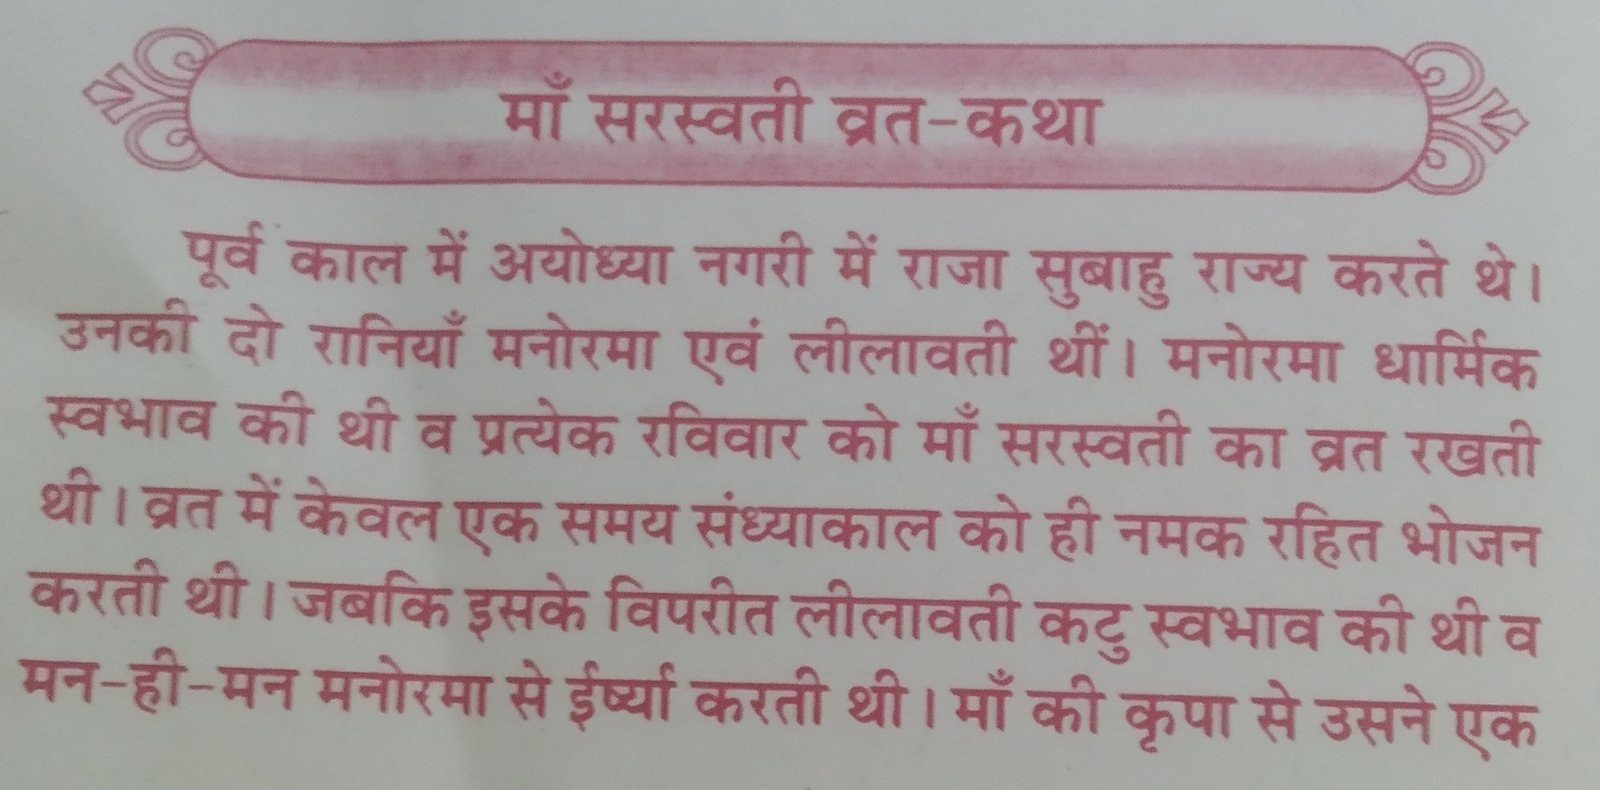 माँ सरस्वती व्रत-कथा
पूर्व काल में अयोध्या नगरी में राजा सुबाहु राज्य करते थे।
उनकी दो रानियाँ मनोरमा एवं लीलावती थीं। मनोरमा धार्मिक
स्वभाव की थी व प्रत्येक रविवार को माँ सरस्वती का व्रत रखती
थी। व्रत में केवल एक समय संध्याकाल को ही नमक रहित भोजन
करती थी। जबकि इसके विपरीत लीलावती कटु स्वभाव की थी व
मन-ही-मन मनोरमा से ईर्ष्या करती थी। माँ की कृपा से उसने एक